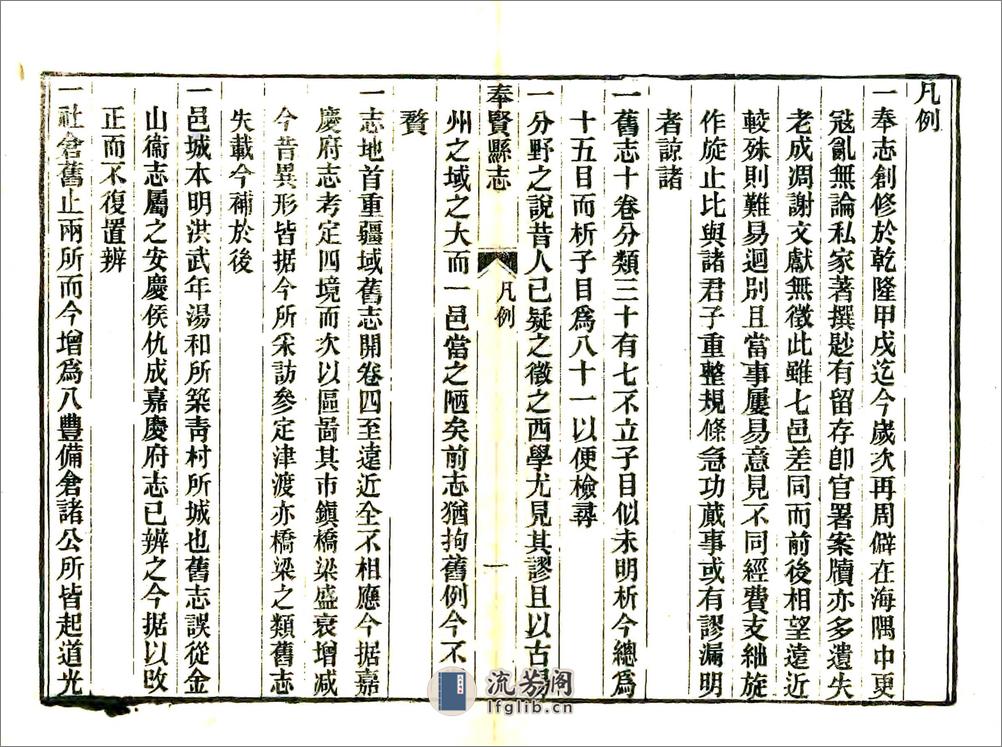 凡例
一奉志創修於乾隆甲戌迄今歲次再周僻在海隅中更
寇亂無論私家著撰尠有留存卽官署案牘亦多遺失
老成凋謝文獻無徵此雖七邑差同而前後相望遠近
較殊則難易迥別且當事屢易意見不同經費支絀旋
作旋止比與諸君子重整規條急功蕆事或有謬漏明
者諒諸
一舊志十卷分類三十有七不立子目似未明析今總爲
十五目而析子目爲八十一以便檢尋
一分野之說昔人已疑之徵之西學尤見其謬且以古揚
州之域之大而一邑當之陋矣前志猶拘舊例今不
贅
奉賢縣志
凡例
一
一志地首重疆域舊志開卷四至遠近全不相應今据嘉
慶府志考定四境而次以區啚其市鎮橋梁盛衰增减
今昔異形皆据今所采訪參定津渡亦橋梁之類舊志
失載今補於後
一邑城本明洪武年湯和所築靑村所城也舊志誤從金
山衞志屬之安慶侯仇成嘉慶府志已辨之今据以攺
正而不復置辨
一社倉舊止兩所而今增爲八豐備倉諸公所皆起道光
流芳阁
lfglib.cn